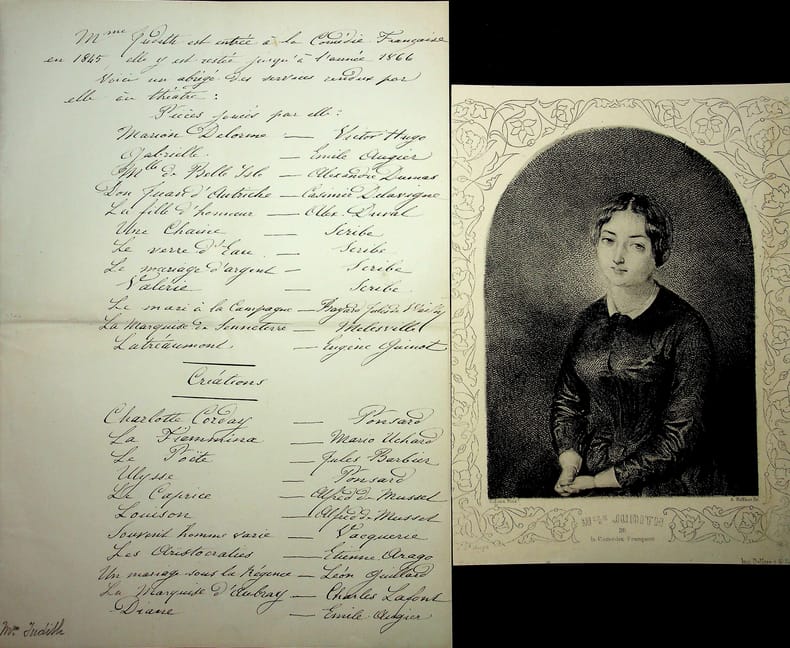 Mme Judith est entrée à la Comédie Française
en 1845 elle y est restée jusqu'à l'année 1866
Voici un abrégé des services rendus par
elle au théâtre :
Pièces jouées par elle :
Marion Delorme — Victor Hugo
Gabrielle — Emile Augier
Mlle de Belle Isle — Alexandre Dumas
Don Juan d'Autriche — Casimir Delavigne
La fille d'honneur — Alex Duval
Une Chaine — Scribe
Le verre d'Eau — Scribe
Le mariage d'argent — Scribe
Valérie — Scribe
Le mari à la Campagne — Bayard
La Marquise de Senneterre — Melesville
Latréaumont — Eugène Guinot
Créations
Charlotte Corday — Ponsard
La Fiammina — Mario Uchard
Le Poëte — Jules Barbier
Ulysse — Ponsard
Le Caprice — Alfred de Musset
Louison — Alfred de Musset
Souvent homme varie — Vacquerie
Les Aristocraties — Etienne Arago
Un mariage sous la Régence — Léon Guillard
La Marquise d'Aubray — Charles Lafont
Diane — Emile Augier
Mme Judith
JUDITH
DE
la Comédie Française